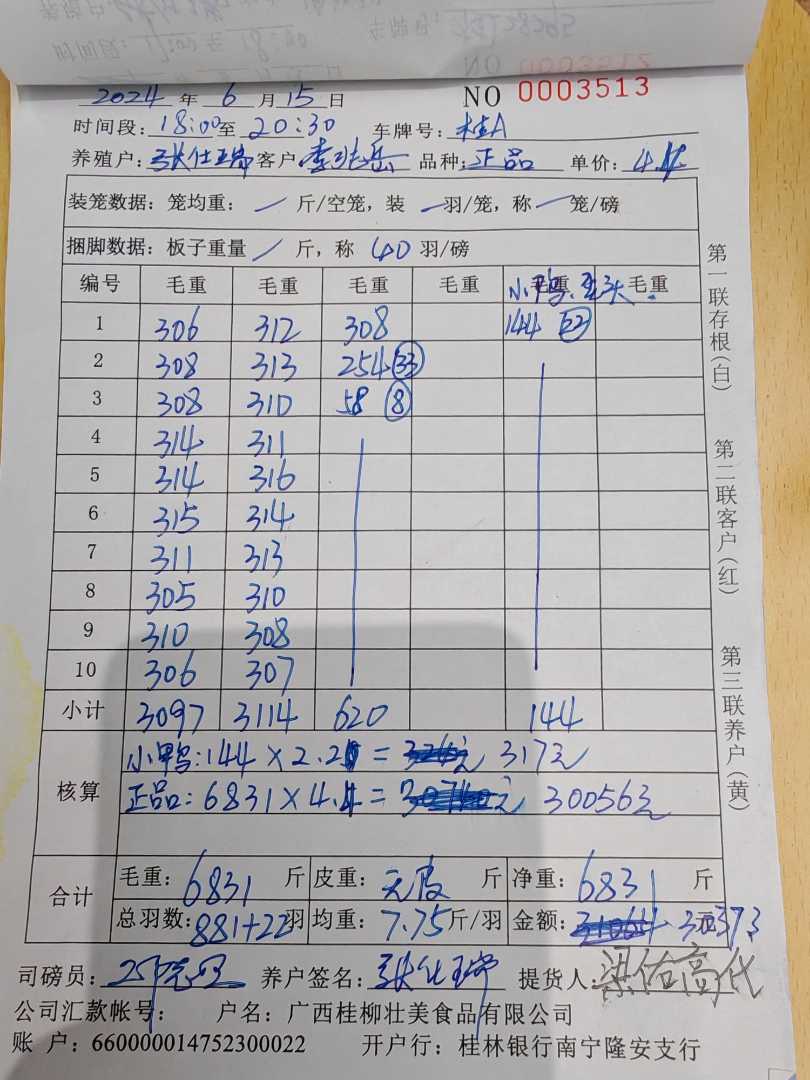 2024 年 6 月 15 日 NO 0003513
时间段: 18:00 至 20:30 车牌号: 桂A
养殖户: 张仕瑞 客户: 李 岳 品种: 正品 单价: 4.4
装笼数据: 笼均重: / 斤/空笼, 装 / 羽/笼, 称 / 笼/磅
捆脚数据: 板子重量 / 斤, 称 40 羽/磅
编号 毛重 毛重 毛重 毛重 毛重 毛重
小鸭
1 306 312 308 144 22
2 308 313 254 33
3 308 310 58 8
4 314 311
5 314 316
6 315 314
7 311 313
8 305 310
9 310 308
10 306 307
小计 3097 3114 620 144
核算
小鸭: 144 × 2.2 = 元 317元
正品: 6831 × 4.4 = 元 30056元
合计
毛重: 6831 斤 皮重: 无皮 斤 净重: 6831 斤
总羽数: 881+22 羽 均重: 7.75 斤/羽 金额: 30373 元
司磅员: 养户签名: 张仕瑞 提货人: 梁佑高代
公司汇款帐号: 户名: 广西桂柳壮美食品有限公司
账 户: 660000014752300022 开户行: 桂林银行南宁隆安支行
第一联存根(白) 第二联客户(红) 第三联养户(黄)